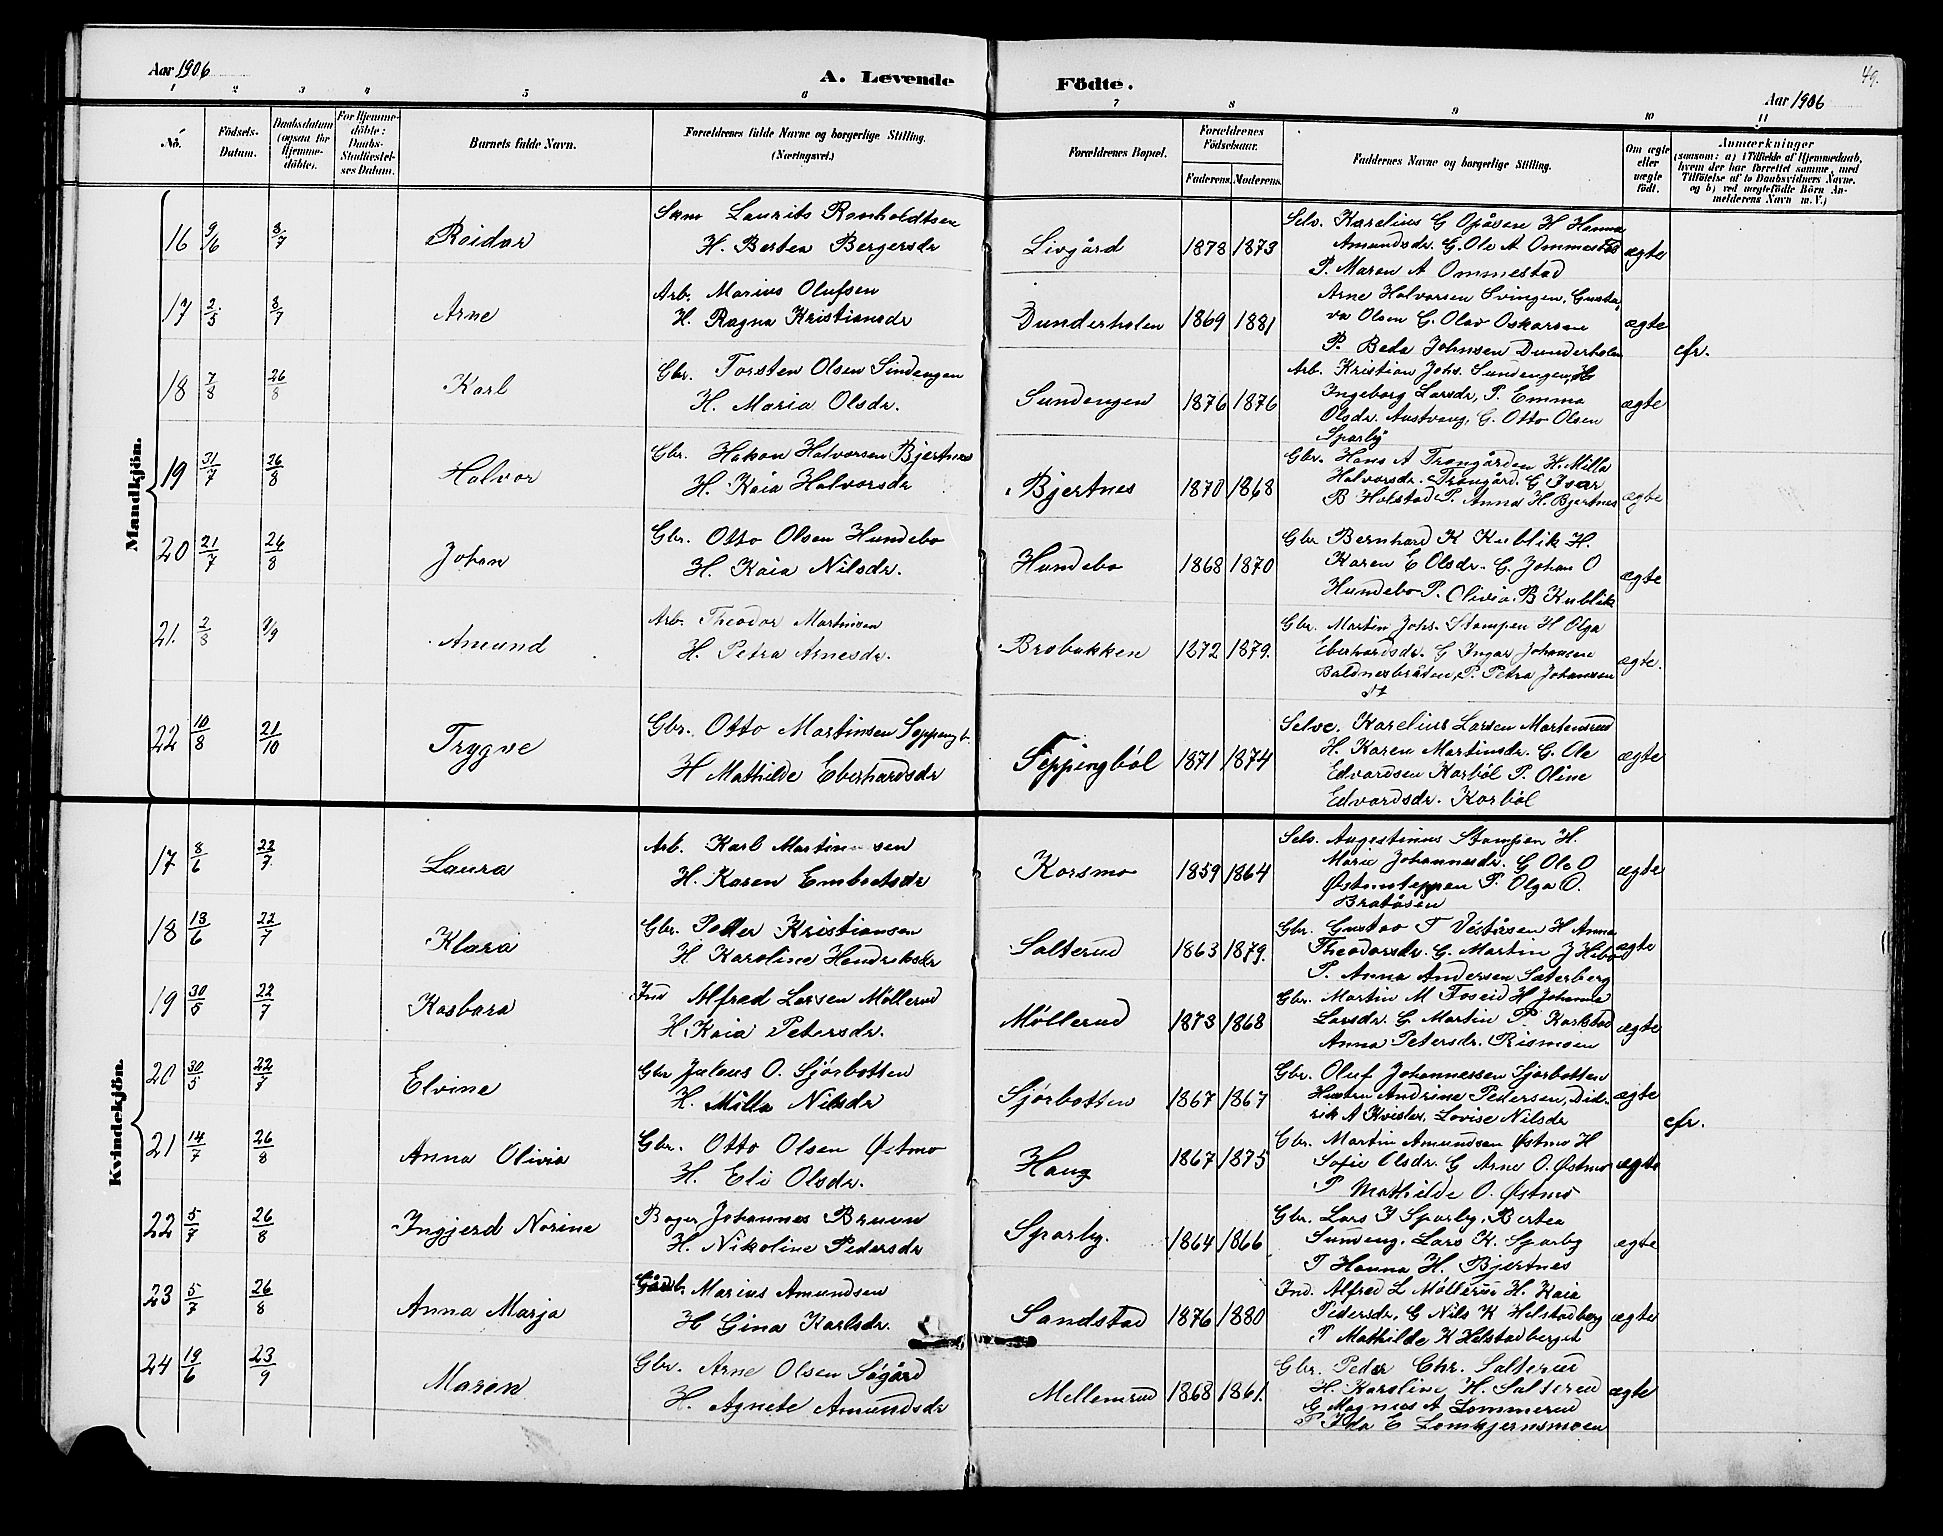 Aar 1906
A. Levende Födte.
49.
Aar 1906
1 2 3 4 5 6 7 8 9 10 11
Nó.
Födsels-Datum.
Daabsdatum (ogsaa for Hjemme-döbte).
For Hjemme-döbte: Daabs-Stadfæstelses Datum.
Barnets fulde Navn.
Forældrenes fulde Navne og borgerlige Stilling. (Næringsvei.)
Forældrenes Bopæl.
Forældrenes Födselsaar.
Faderens. Moderens.
Faddernes Navne og borgerlige Stilling.
Om ægte eller uægte födt.
Anmærkninger
(saasom: a) i Tilfælde af Hjemmedaab, hvem der har forrettet samme, med Tilföielse af to Daabsvidners Navne, og b) ved uægtefödte Börn Anmelderens Navn m. V.)
Mandkjön.
16 9/6 8/7 Reidar
Laurits Ramholdtsen
H. Bertea Bergersdr
Livgård 1873 1873
Selv. Karelius G Opåsen H Hanna
Amundsdr. G. Ole A Ommestad
P. Maren A Ommestad
ægte
17 2/5 8/7 Arne
Arb. Marius Olufsen
H. Ragna Kristiansdr
Dunderholen 1869 1881
Arne Halvorsen Svingen, Gusta
va Olsen G. Olav Oskarsen
P. Beda Johnsen Dunderholen
ægte cfr.
18 7/8 26/8 Karl
Gbr. Torsten Olsen Sundengen
H. Maria Olsdr.
Sundengen 1876 1876
Arb. Kristian Johs. Sundengen, H
Ingeborg Larsdr, P. Emma
Olsdr. Austveng, G. Otto Olsen
Sparby
ægte
19 31/7 26/8 Halvor
Gbr. Hakon Halvorsen Bjertnes
H. Kaia Halvorsdr
Bjertnes 1870 1868
Gbr. Hans A Trongården H. Milla
Halvorsdr. Trongård. G Ivar
B Halstad P. Anna H. Bjertnes
ægte
20 21/7 26/8 Johan
Gbr. Otto Olsen Hundebo
H. Kaia Nilsdr.
Hundebo 1868 1870
Gbr Bernhard K Kublik H.
Karen E Olsdr. G. Johan O
Hundebo P. Olivia B Kublik
ægte
21. 2/8 9/9 Amund
Arb. Theodor Martinsen
H. Petra Arnesdr.
Brobakken 1872 1879.
Gbr. Martin Johs. Stampen H Olga
Eberhardsdr. G Ingar Johansen
Baldnesbråten, P. Petra Johansen
ægte.
22 10/8 21/10 Trygve
Gbr. Otto Martinsen Teppingb.
H Mathilde Eberhardsdr
Teppingböl 1871 1874
Selve. Karelius Larsen Martensrud
H. Karen Martinsdr. G. Ole
Edvardsen Karböl P. Oline
Edvardsdr. Karböl
ægte
Kvindekjön.
17 8/6 22/7 Laura
Arb. Karl Martinussen
H. Karen Embretsdr
Korsmo 1859 1864
Selv. Augustinus Stampen H.
Marie Johannesdr. G Ole O
Østenteppen P. Olga O.
Bratåsen
ægte
18 13/6 22/7 Klara
Gbr. Peder Kristiansen
H Karoline Hendriksdr
Salterud 1863 1879.
Gbr. Gustav T Veståsen H Anna
Theodorsdr. G. Martin J Hebo
P. Anna Andersen Saterberg
ægte
19 30/5 22/7 Kasbara
Ind Alfred Larsen Möllerud
H. Kaia Petersdr.
Möllerud 1873 1868
Gbr. Martin M Foseid H Johanna
Larsdr. G Martin P. Karlstad
Anna Petersdr. Rismoen
ægte
20 30/5 22/7 Elvine
Gbr Julius O. Sjörbotten
H. Milla Nilsdr
Sjörbotten 1867 1867
Gbr. Oluf Johannessen Sjörbotten
Hustru Andrine Pedersen, Did-
rik A Kvisler, Lovise Nilsdr
ægte cfr.
21 14/7 26/8 Anna Olivia
Gbr. Otto Olsen Østmo
H. Eli Olsdr.
Haug 1867 1875
Gbr. Martin Amundsen Østmo H
Sofie Olsdr. G Arne O. Østmo
P Mathilde O. Østmo
ægte
22 5/7 26/8 Ingjerd Norine
Bager Johannes Bruun
H. Nikoline Pedersdr
Sparby. 1864 1866
Gbr. Lars J Sparby, Bertea
Sundeng, Lars K. Sparby
P Hanna H. Bjertnes
ægte
23 5/7 26/8 Anna Marja
Gårdb. Marius Amundsen
H Gina Karlsdr.
Sandstad 1876 1880
Ind. Alfred L Möllerud H. Kaia
Pedersdr, G Nils K Helstadberg
P Mathilde K Helstadberget
ægte
24 19/6 23/9 Maren
Gbr. Arne Olsen Sögård
H. Agnete Amundsdr
Mellemrud 1868 1861.
Gbr. Peder Chr. Salterud
H. Karoline H. Salterud
G Magnus A Lommerud
P Ida E Lomkjernsmoen
ægte